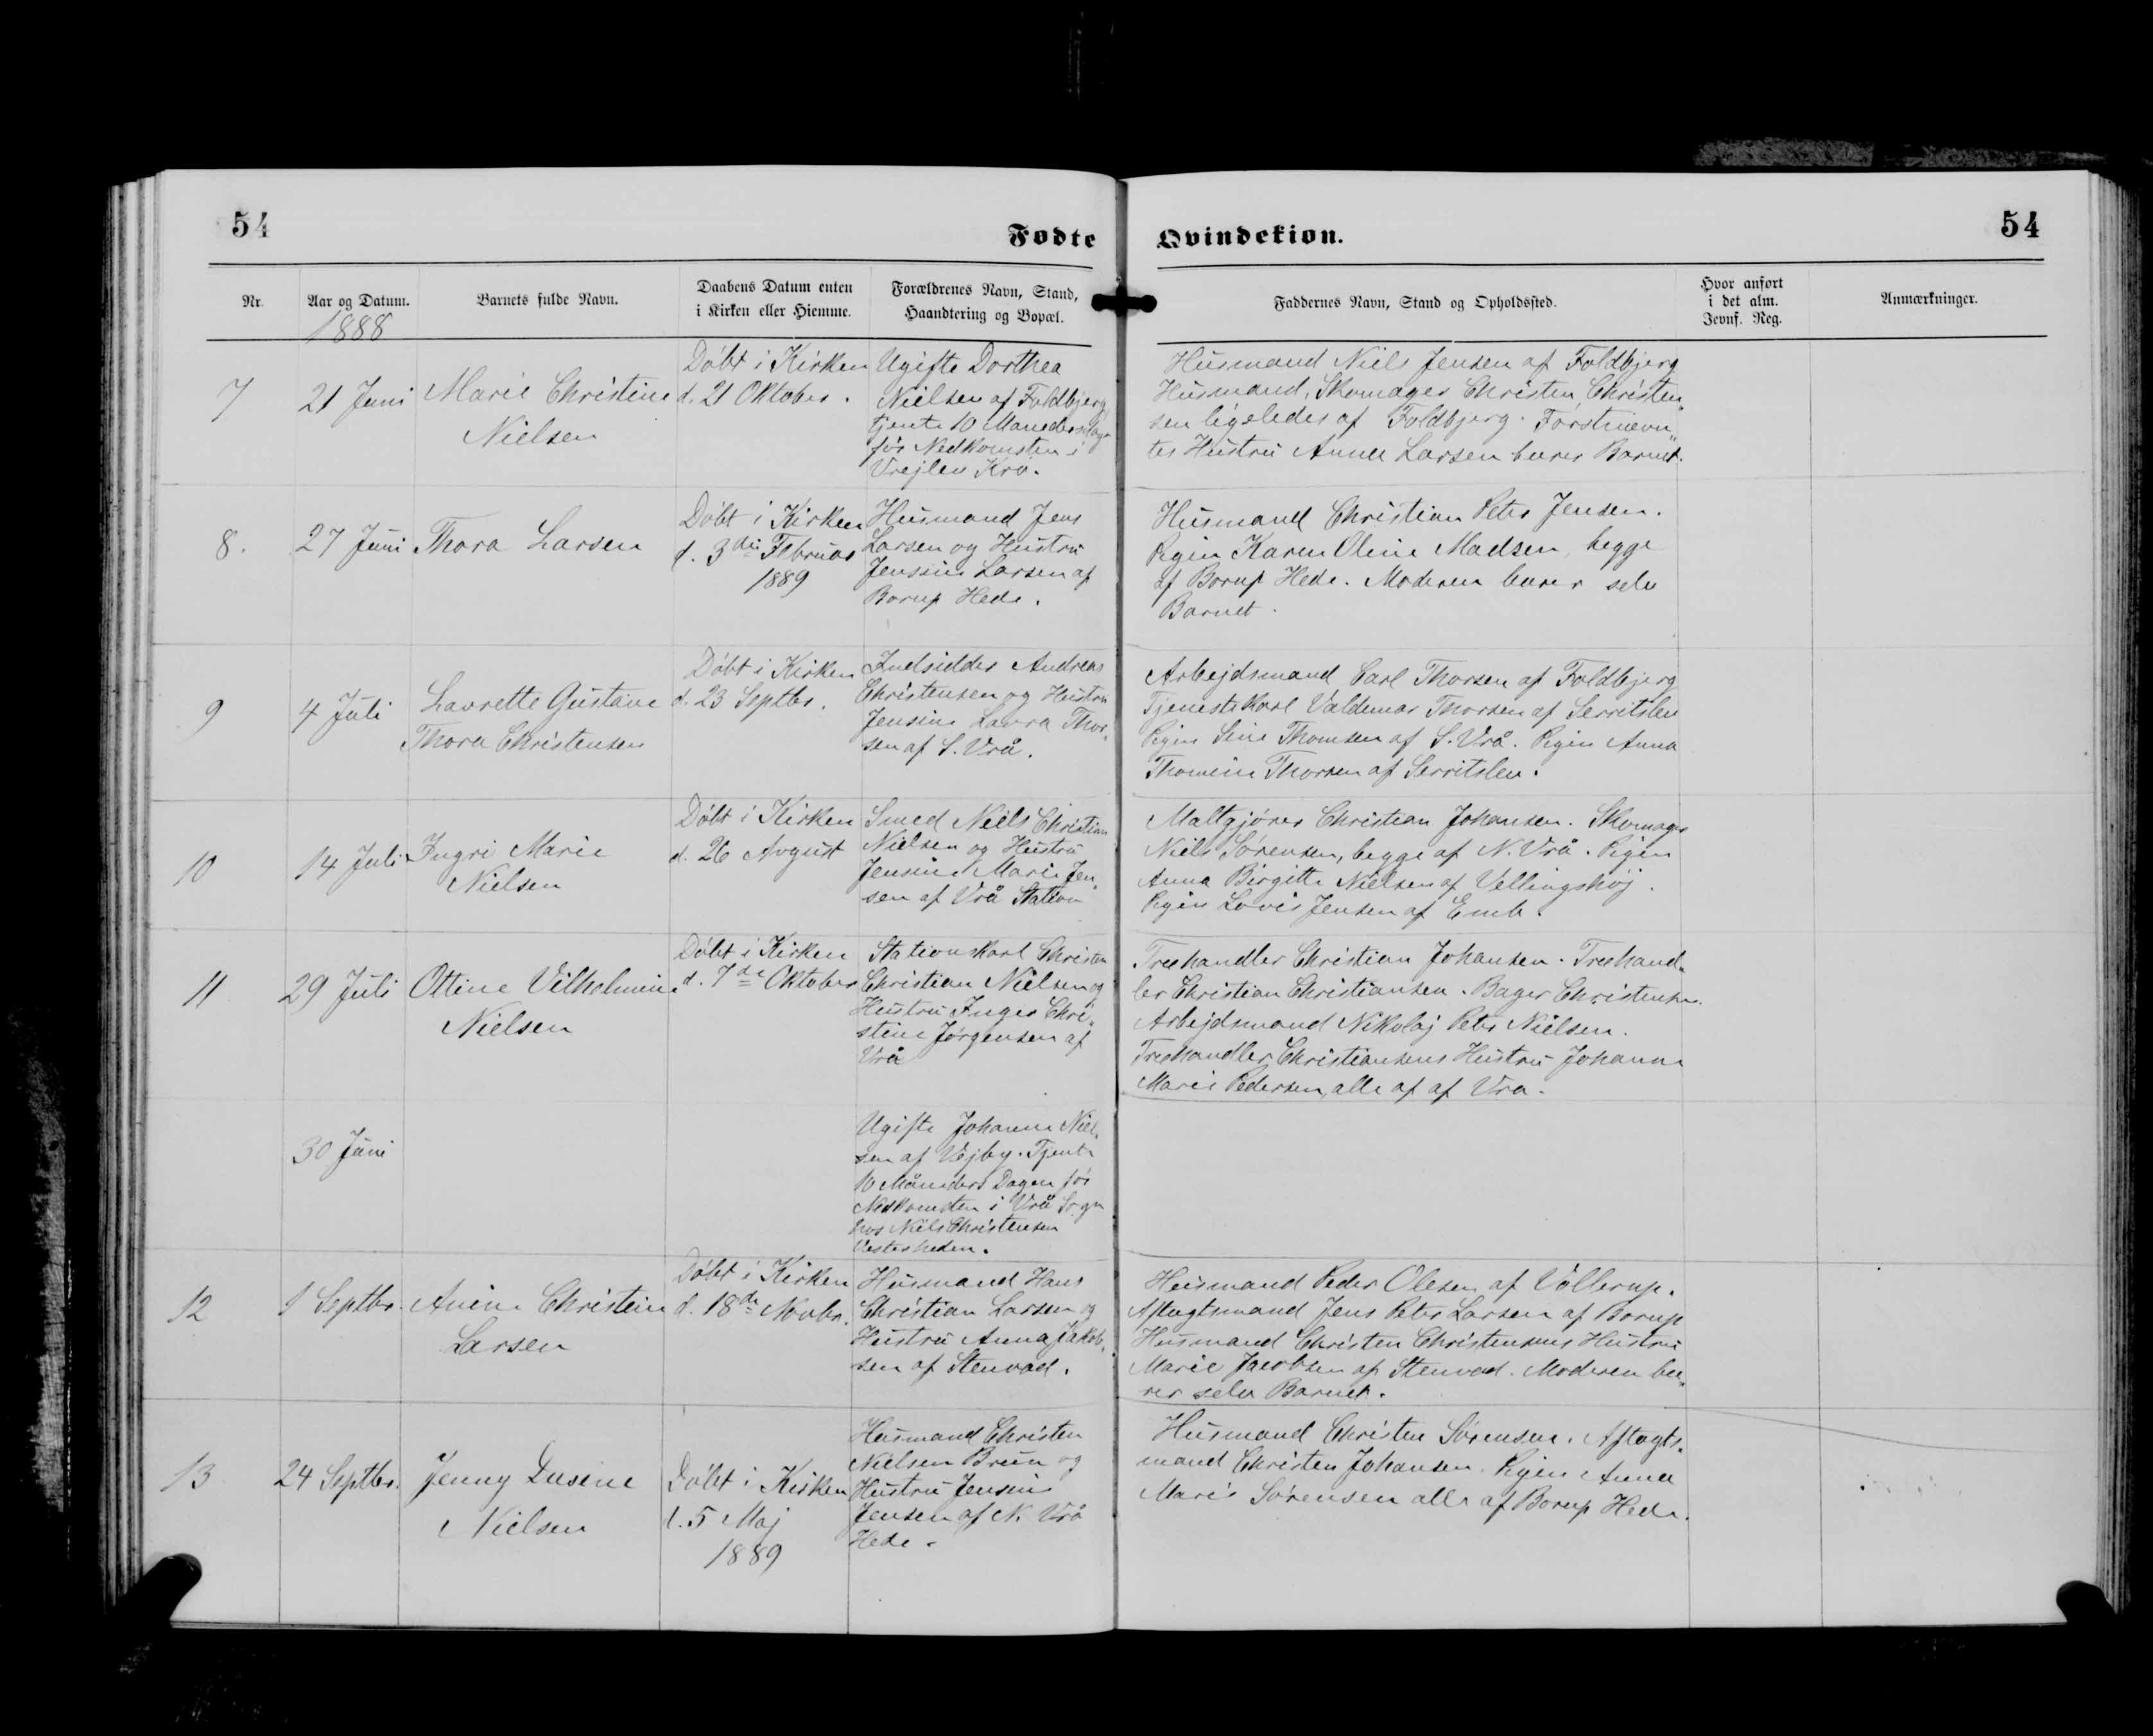 54
Fødte
Qvindekiøn.
54
Nr.
Aar og Datum.
1888
Barnets fulde Navn.
Daabens Datum enten
i Kirken eller Hiemme.
Forældrenes Navn, Stand,
Haandtering og Bopæl.
Faddernes Navn, Stand og Opholdssted.
Hvor anført
i det alm.
Jevnf. Reg.
Anmærkninger.
7
21 Juni
Marie Christine
Nielsen
Döbt i Kirken
d. 21 Oktober.
Ugifte Dorthea
Nielsen af Foldbjerg,
tjente 10 Manedersdagen
før Nedkomsten i
Vrejlev Kro.
Husmand Niels Jensen af Foldbjerg
Husmand, Skomager Christen Christen„
sen ligeledes af Foldbjerg. Förstnævn„
tes Hustru Anna Larsen barer Barnet.
8.
27 Juni
Thora Larsen
Döbt i Kirken
d. 3die Februar
1889
Husmand Jens
Larsen og Hustru
Jensine Larsen af
Borup Hede.
Husmand Christian Peter Jensen.
Pigen Karen Oline Madsen, begge
af Borup Hede. Moderen barer selv
Barnet.
9
4 Juli
Laurette Gustave
Thora Christensen
Döbt i Kirken
d. 23 Septbr.
Indsidder Andreas
Christensen og Hustru
Jensine Laura Thor„
sen af S. Vrå.
Arbejdsmand Carl Thorsen af Foldbjerg
Tjenestekarl Valdemar Thorsen af Serritslev
Pigen Sine Thomsen af S. Vrå. Pigen Anna
Thomine Thorsen af Serritslev.
10
14 Juli
Ingri Marie
Nielsen
Döbt i Kirken
d. 26 Avgust
Smed Niels Christian
Nielsen og Hustru
Jensine Marie Jen„
sen af Vrå Station
Maltgjører Christian Johansen. Skomager
Niels Sörensen, begge af N. Vrå. Pigen
Anna Birgitte Nielsen af Vellingshöj.
Pigen Lovis Jensen af Emb.
11
29 Juli
Ottine Vilhelmine
Nielsen
Döbt i Kirken
d. 7de Oktober
Stationskarl Christen
Christian Nielsen og
Hustru Inger Chri„
stine Jörgensen af
Vrå
Træhandler Christian Johansen. Træhand„
ler Christian Christiansen. Bager Christensen.
Arbejdsmand Nikolaj Peter Nielsen.
Træhandler Christiansens Hustru Johanne
Marie Pedersen, alle af af Vra.
30 Juni
Ugifte Johanne Niel„
sen af Vejby. Tjente
10 Måneders Dagen før
Nedkomsten i Vrå Sogn
hos Niels Christensen
Vesterheden.
12
1 Septbr.
Anine Christine
Larsen
Döbt i Kirken
d. 18de Novbr.
Husmand Hans
Christian Larsen og
Hustru Anna Jakob„
sen af Stenvad.
Husmand Peder Olesen af Vollerup.
Aftægtsmand Jens Peter Larsen af Borup
Husmand Christen Christensens Hustru
Marie Jacobsen af Stenvad. Moderen bæ„
rer selv Barnet.
13
24 Septbr.
Jenny Dusine
Nielsen
Döbt i Kirken
d. 5 Maj
1889
Husmand Christen
Nielsen Bruun og
Hustru Jensine
Jensen af N. Vrå
Hede.
Husmand Christen Sörensen. Aftægts„
mand Christen Johansen. Pigen Anna
Marie Sörensen alle af Borup Hede.